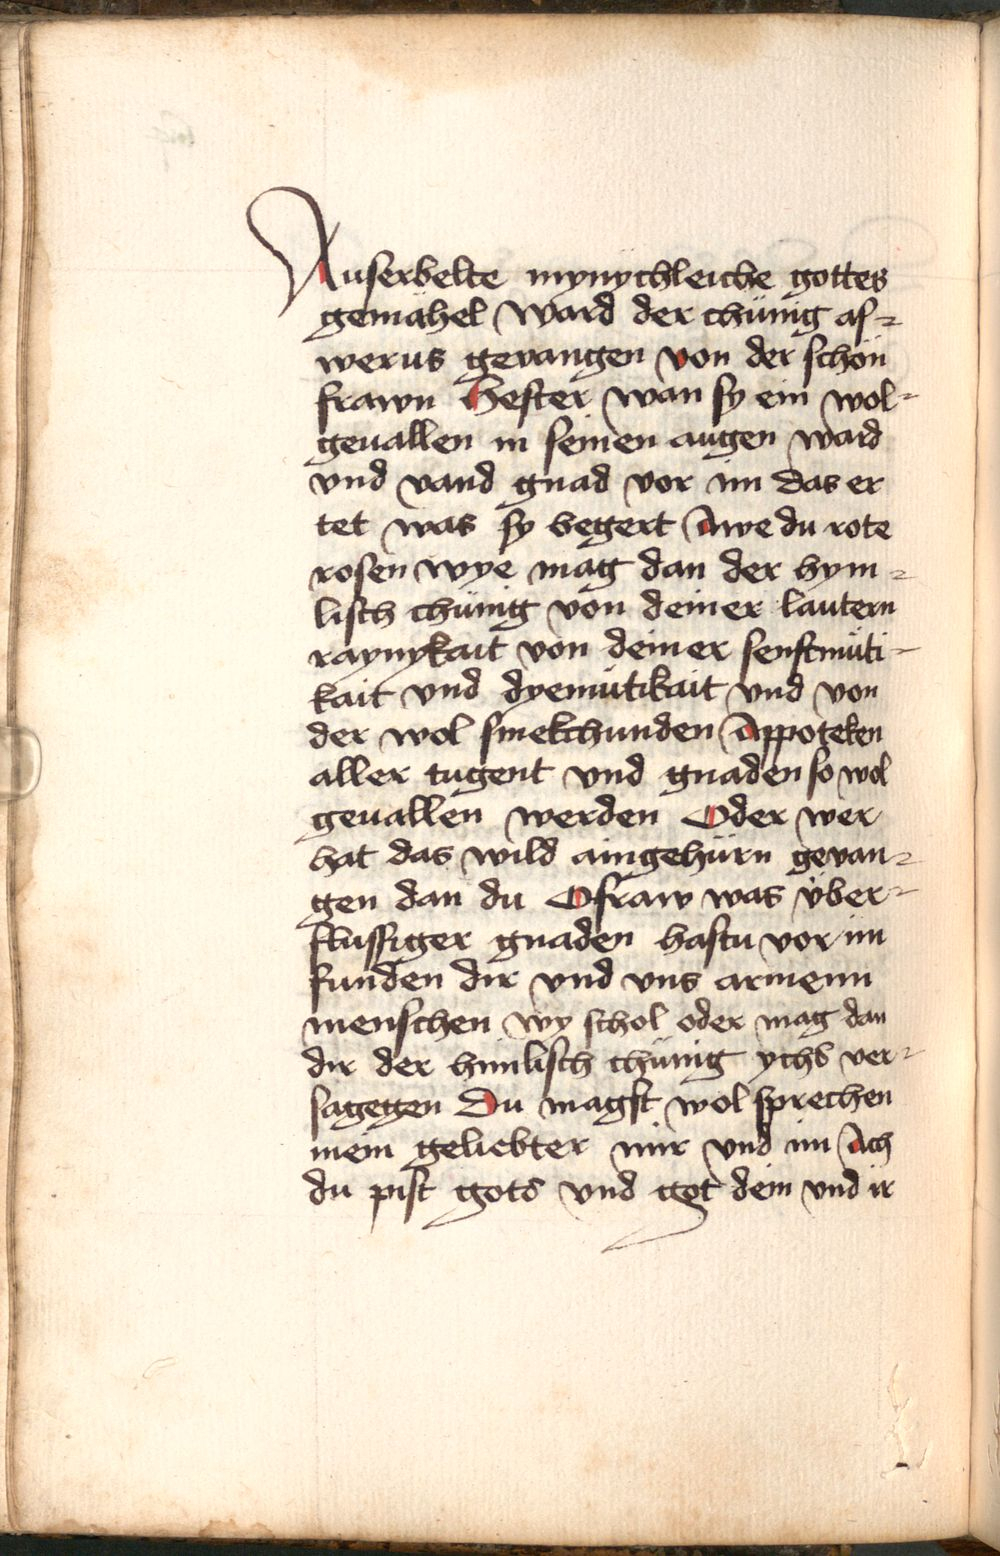 Auserbelte mynychleiche gottes
gemähel ward der chünig as-
werus gevangen von der schön
frawn Hester wan sy ein wol-
geuallen in seinen augen ward
vnd vand gnad vor im das er
tet was sy begert Awe du rote
rosen wye mag dan der hym-
lisch chünig von deiner lautern
raynykait von deiner senftmüti-
kait vnd dyemütikait vnd von
der wol smekchunden Appoteken
aller tugent vnd gnaden so wol
geuallen werden Oder wer
hat das wild aingehürn gevan-
gen dan du O fraw was über-
flussiger gnaden hastu vor im
funden dir vnd vns armenn
menschen wy schol oder mag dan
dir der himlisch chünig ychs ver-
sagegen Du magst wol sprechen
mein geliebter mir vnd im Ach
du pist gots vnd got dein vnd ir